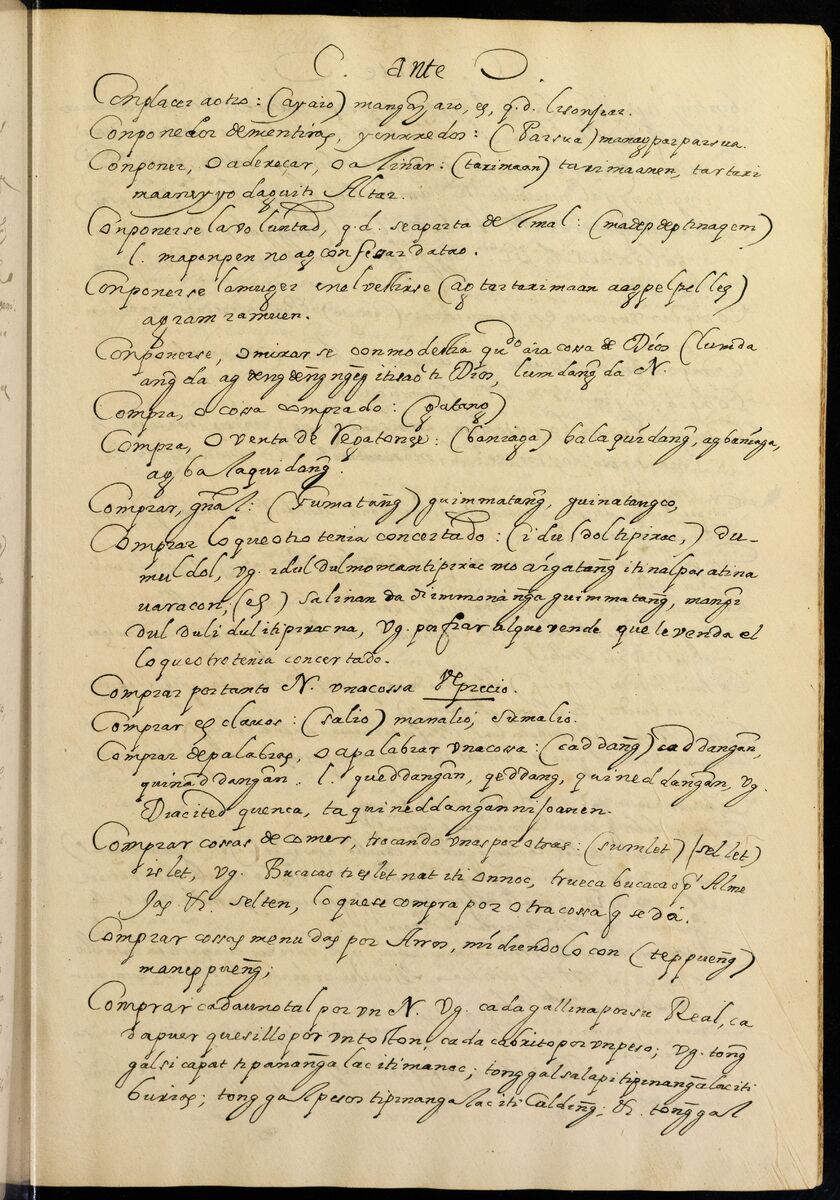 C. ante O
Conplacer aotro: (ayaro) mangayaro, es, q.d. lisongear.
Conponedor dementiras, yenrredos: (Parsua) manag parparsua.
Conponer, o aderecar, o aliñar: (tarimaan) tarimaanen, tartari
maanyyo daguiti Altar.
Conponerse la voluntad, q.d. seaparta de lmal: (madepdep tinaqem)
l. maponpen no ag confesar datao.
Conponerse lamuger enel vestirse (ag tartarimaan aagpelpelles)
agramramuen.
Conponerse, omirarse conmodestia qudo ira cossa de Dios (lumda
ang da ag dengdeng ngeg itisao ti Dios, lumdang da N.
Compra, o cossa comprado: (gatang)
Compra, o venta de Regatones: (baniaga) balaquidang, agbaniaga,
ag balaquidang.
Comprar, gñal: (Fumatang) guimmatang, guinatangco,
Comprar loqueotro tenia concertado: (idul dol tipirac,) du-
muldol, vg. idul dulmoman tipirac mo aigatang itinalpas atina
uaracon, (es) salinan da diimmona nga guimmatang, mangi
dul duli dul itipiracna, vg. porfiar alque vende que levenda el
loqueotro tenia concertado.
Comprar portanto N. vnacossa V. precio.
Comprar esclauos: (salio) manalio, sumalio.
Comprar depalabras, o apalabrar vnacossa: (caddang) caddangan,
quinaddangan. l. queddangan, qeddang, quineddangan, vg.
Diacited quenca, ta quineddangan ni Joanen.
Comprar cossas de comer, trocando vnas por otras: (sumlet) (sellet)
islet, vg. Bucacao ti islet nat iti onnoc, trueca bucacao pr Alme
Jas, &. selten, lo quese compra por otra cossa q se dá.
Comprar cossas menudas por Arros, midiendolo con (teppueng)
maneppueng;
Comprar cadauno tal por vn N. Vg. cada gallina por su Real, ca
dapuer quesillo por vn toston, cada cabrito por vn peso; vg. tong
galsicapat tipananga lac iti manoc; tonggal salapi tipinanga lac iti
burias; tonggal pesos tipinanga lac iti Calding; &. tonggal